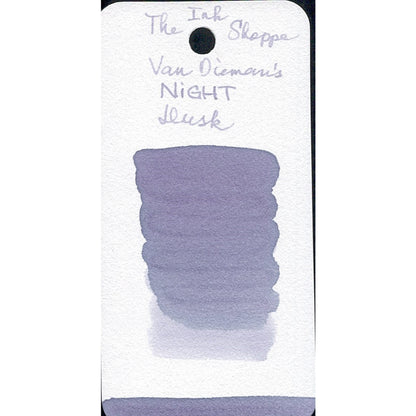 The Ink
Shoppe
Van Dieman's
NiGHT
Dusk